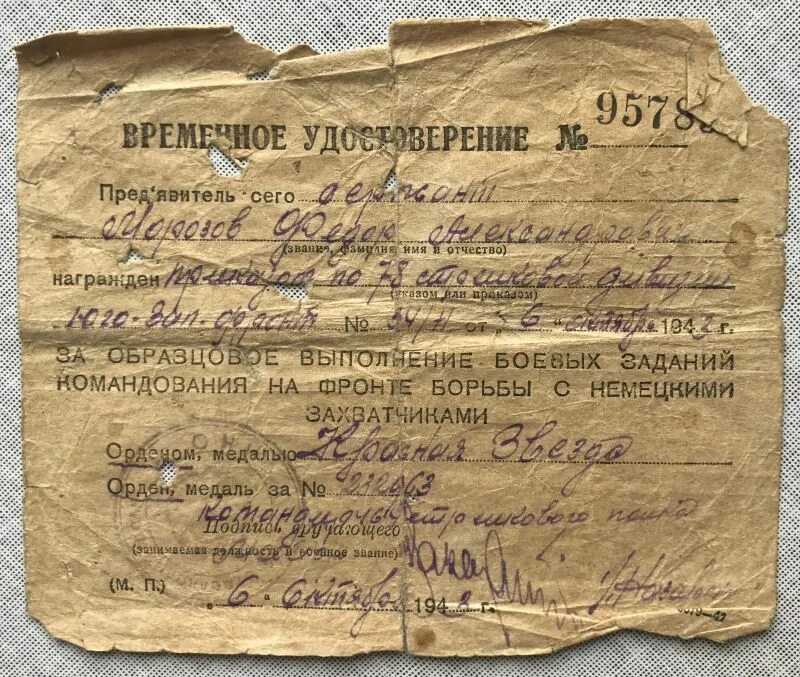 ВРЕМЕННОЕ УДОСТОВЕРЕНИЕ № 9578
Пред'явитель сего сержант
Морозов Федор Александрович
(звание, фамилия, имя и отчество)
награжден приказом по 78 стрелковой дивизии
(указом или приказом)
Юго-Зап. фронт № 34/Н от „6“ октября 1942 г.
ЗА ОБРАЗЦОВОЕ ВЫПОЛНЕНИЕ БОЕВЫХ ЗАДАНИЙ
КОМАНДОВАНИЯ НА ФРОНТЕ БОРЬБЫ С НЕМЕЦКИМИ
ЗАХВАТЧИКАМИ
Орденом, медалью Красная Звезда
Орден, медаль за №
Командир стрелкового полка
Подпись вручающего
(занимаемая должность и военное звание)
(М. П.)
„6“ Октября 1942 г.